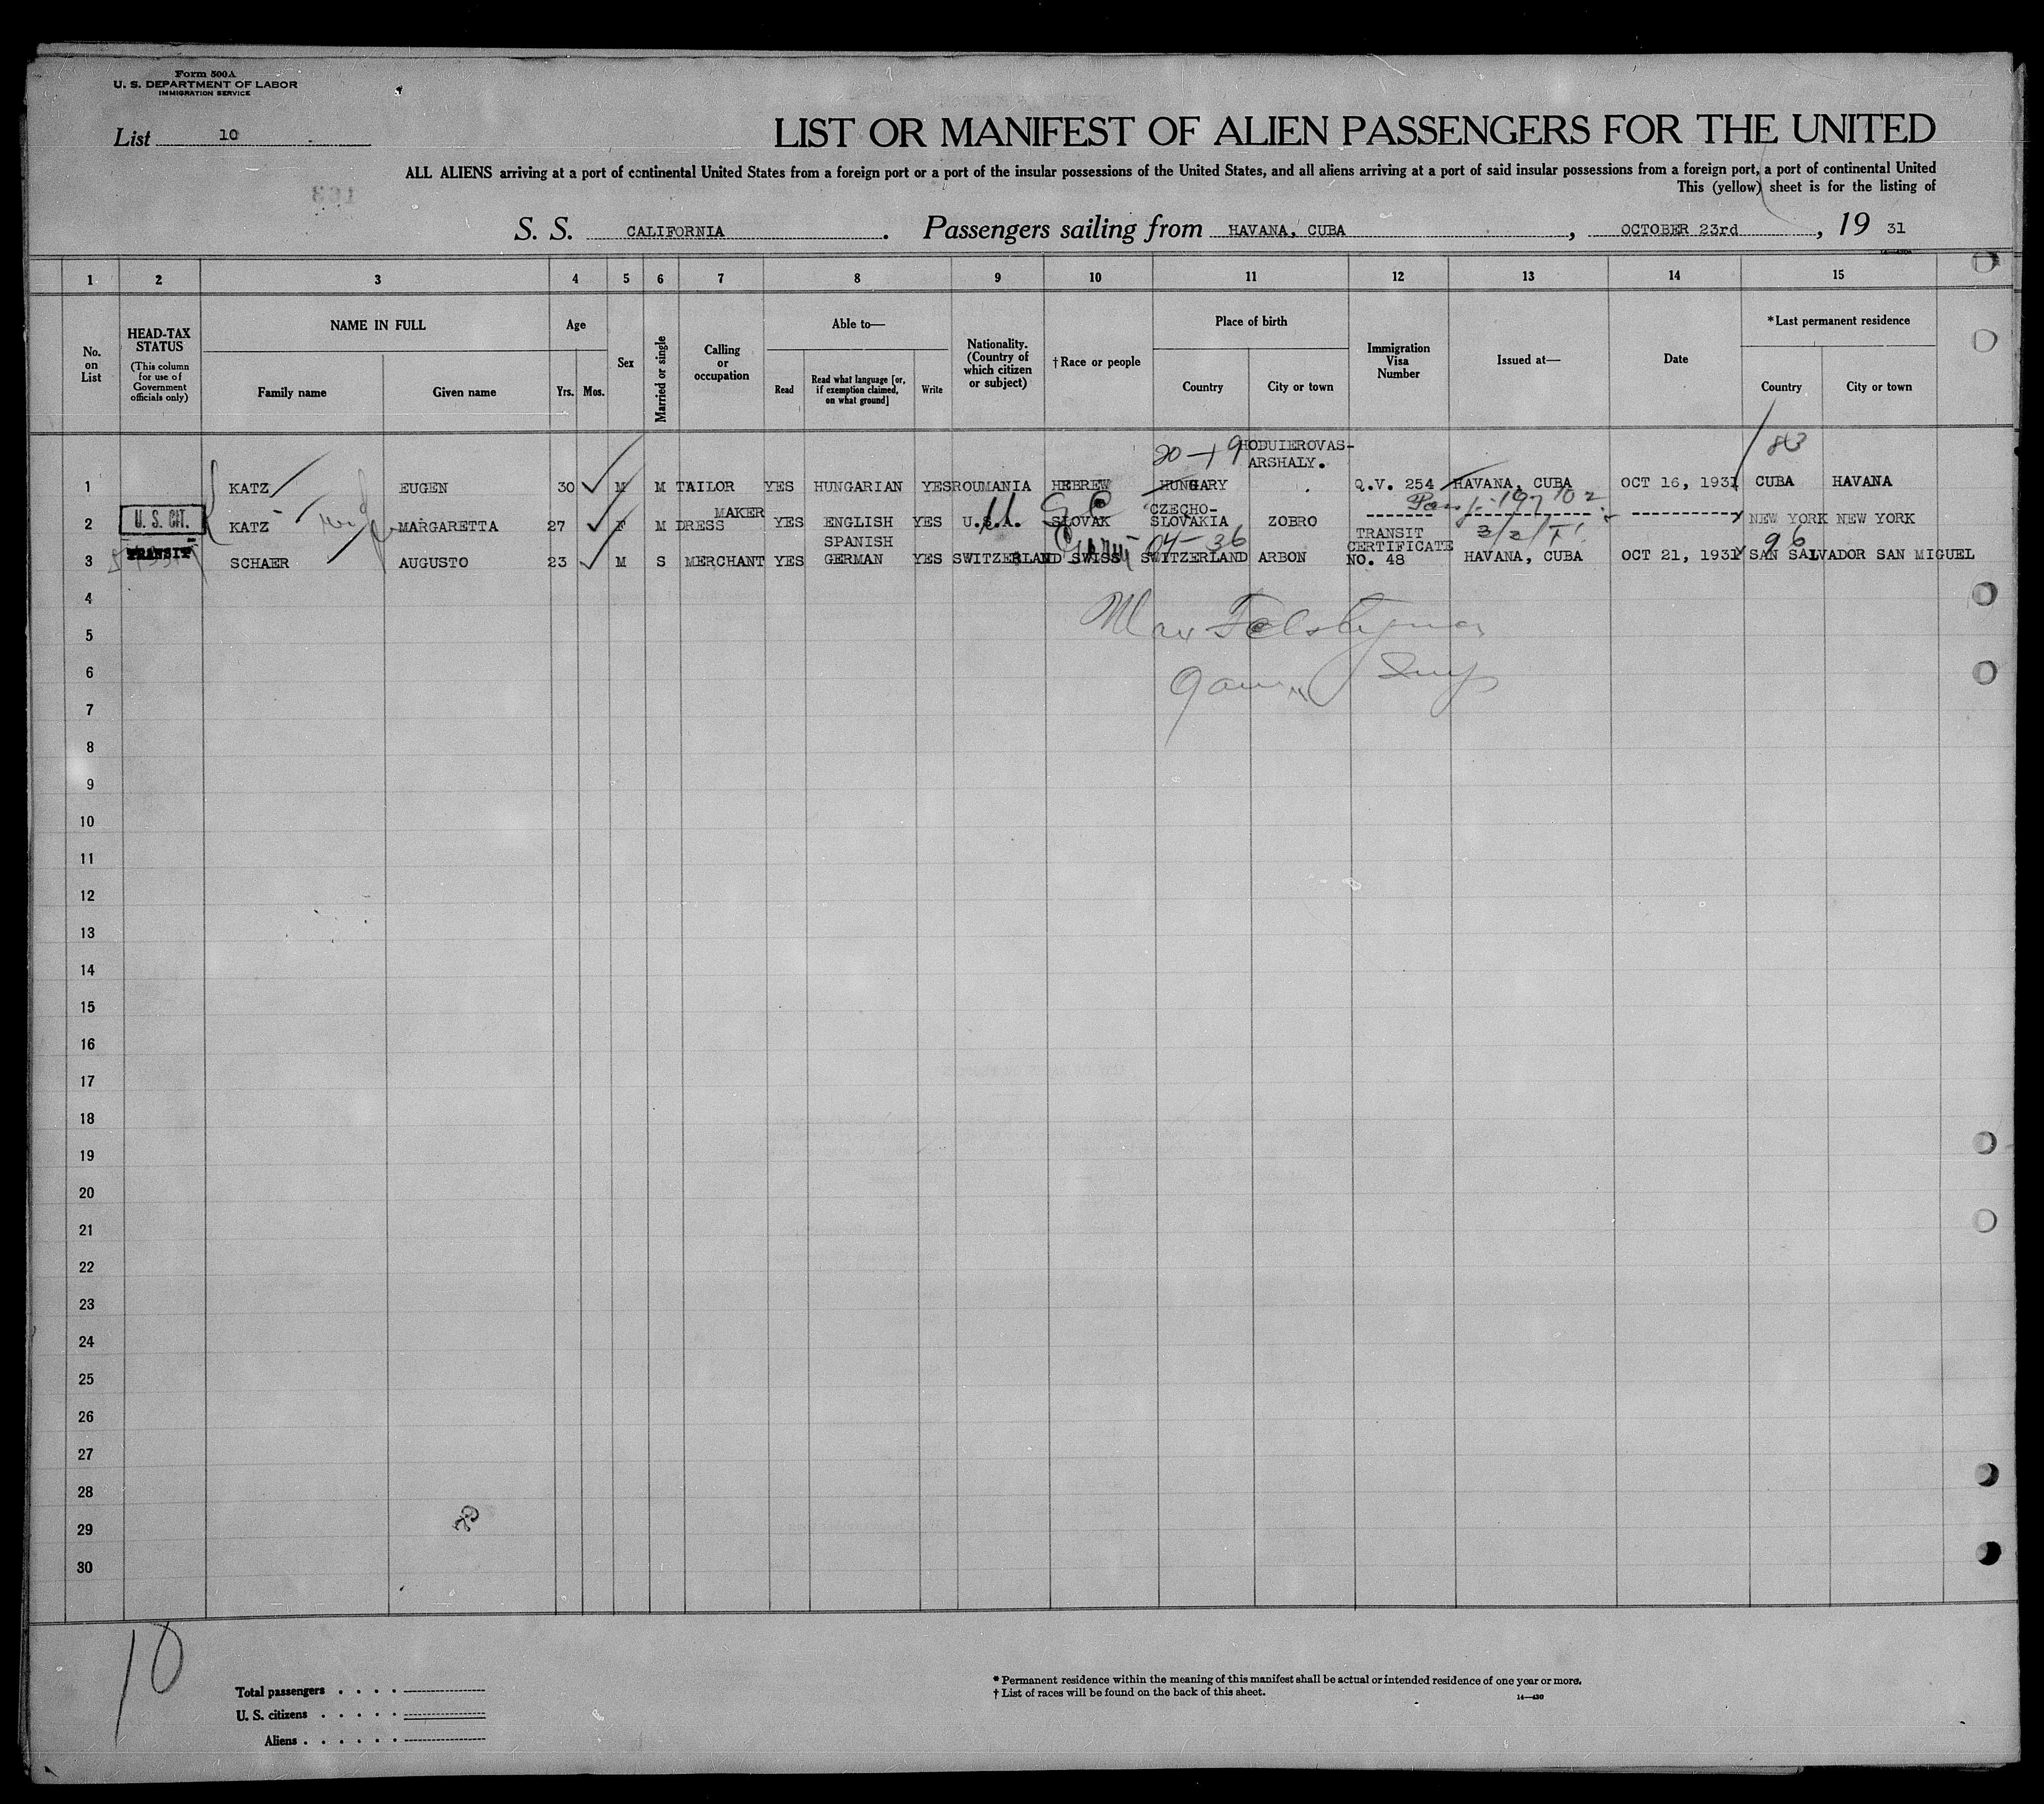 Form 500A
U. S. DEPARTMENT OF LABOR
IMMIGRATION SERVICE
List 10
LIST OR MANIFEST OF ALIEN PASSENGERS FOR THE UNITED
ALL ALIENS arriving at a port of continental United States from a foreign port or a port of the insular possessions of the United States, and all aliens arriving at a port of said insular possessions from a foreign port, a port of continental United
This (yellow) sheet is for the listing of
163
S. S. CALIFORNIA. Passengers sailing from HAVANA, CUBA, OCTOBER 23rd, 19 31
14-430A
1 2 3 4 5 6 7 8 9 10 11 12 13 14 15
No. on List
HEAD-TAX STATUS
(This column for use of Government officials only)
NAME IN FULL
Family name Given name
Age
Yrs. Mos.
Sex
Married or single
Calling or occupation
Able to—
Read
Read what language [or, if exemption claimed, on what ground]
Write
Nationality. (Country of which citizen or subject)
†Race or people
Place of birth
Country City or town
Immigration Visa Number
Issued at—
Date
*Last permanent residence
Country City or town
20-19 HODUIEROVAS-
ARSHALY. 83
1 KATZ EUGEN 30 M M TAILOR YES HUNGARIAN YES ROUMANIA HEBREW HUNGARY Q.V. 254 HAVANA, CUBA OCT 16, 1931 CUBA HAVANA
2 U. S. CIT. KATZ MARGARETTA 27 F M DRESS MAKER YES ENGLISH YES U.S.A. SLOVAK CZECHO-SLOVAKIA ZOBRO NEW YORK NEW YORK
04-36 96
3 TRANSIT SCHAER AUGUSTO 23 M S MERCHANT YES SPANISH GERMAN YES SWITZERLAND SWISS SWITZERLAND ARBON TRANSIT CERTIFICATE NO. 48 HAVANA, CUBA OCT 21, 1931 SAN SALVADOR SAN MIGUEL
4
5
6
7
8
9
10
11
12
13
14
15
16
17
18
19
20
21
22
23
24
25
26
27
28
29
30
10
Total passengers
U. S. citizens
Aliens
* Permanent residence within the meaning of this manifest shall be actual or intended residence of one year or more.
† List of races will be found on the back of this sheet.
14-430